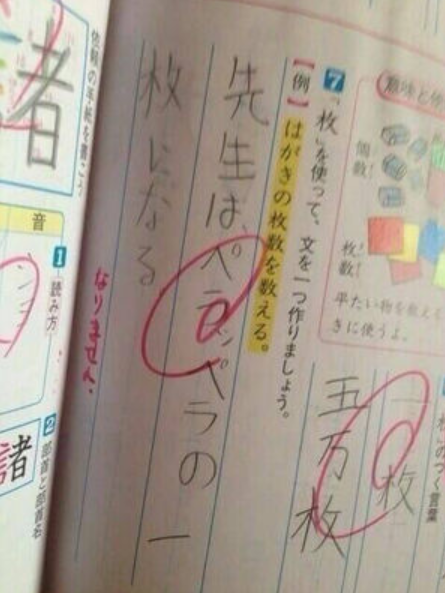 個数!
枚数!
平たい物を数える
きに使うよ。
のつく言葉
一枚
五万枚
7 「枚」を使って、文を一つ作りましょう。
【例】はがきの枚数を数える。
先生は、ペラッペラの一
枚になる
なりません。
依頼の手紙を書こう
者
音
1 読み方
2 部首と部首名
諸